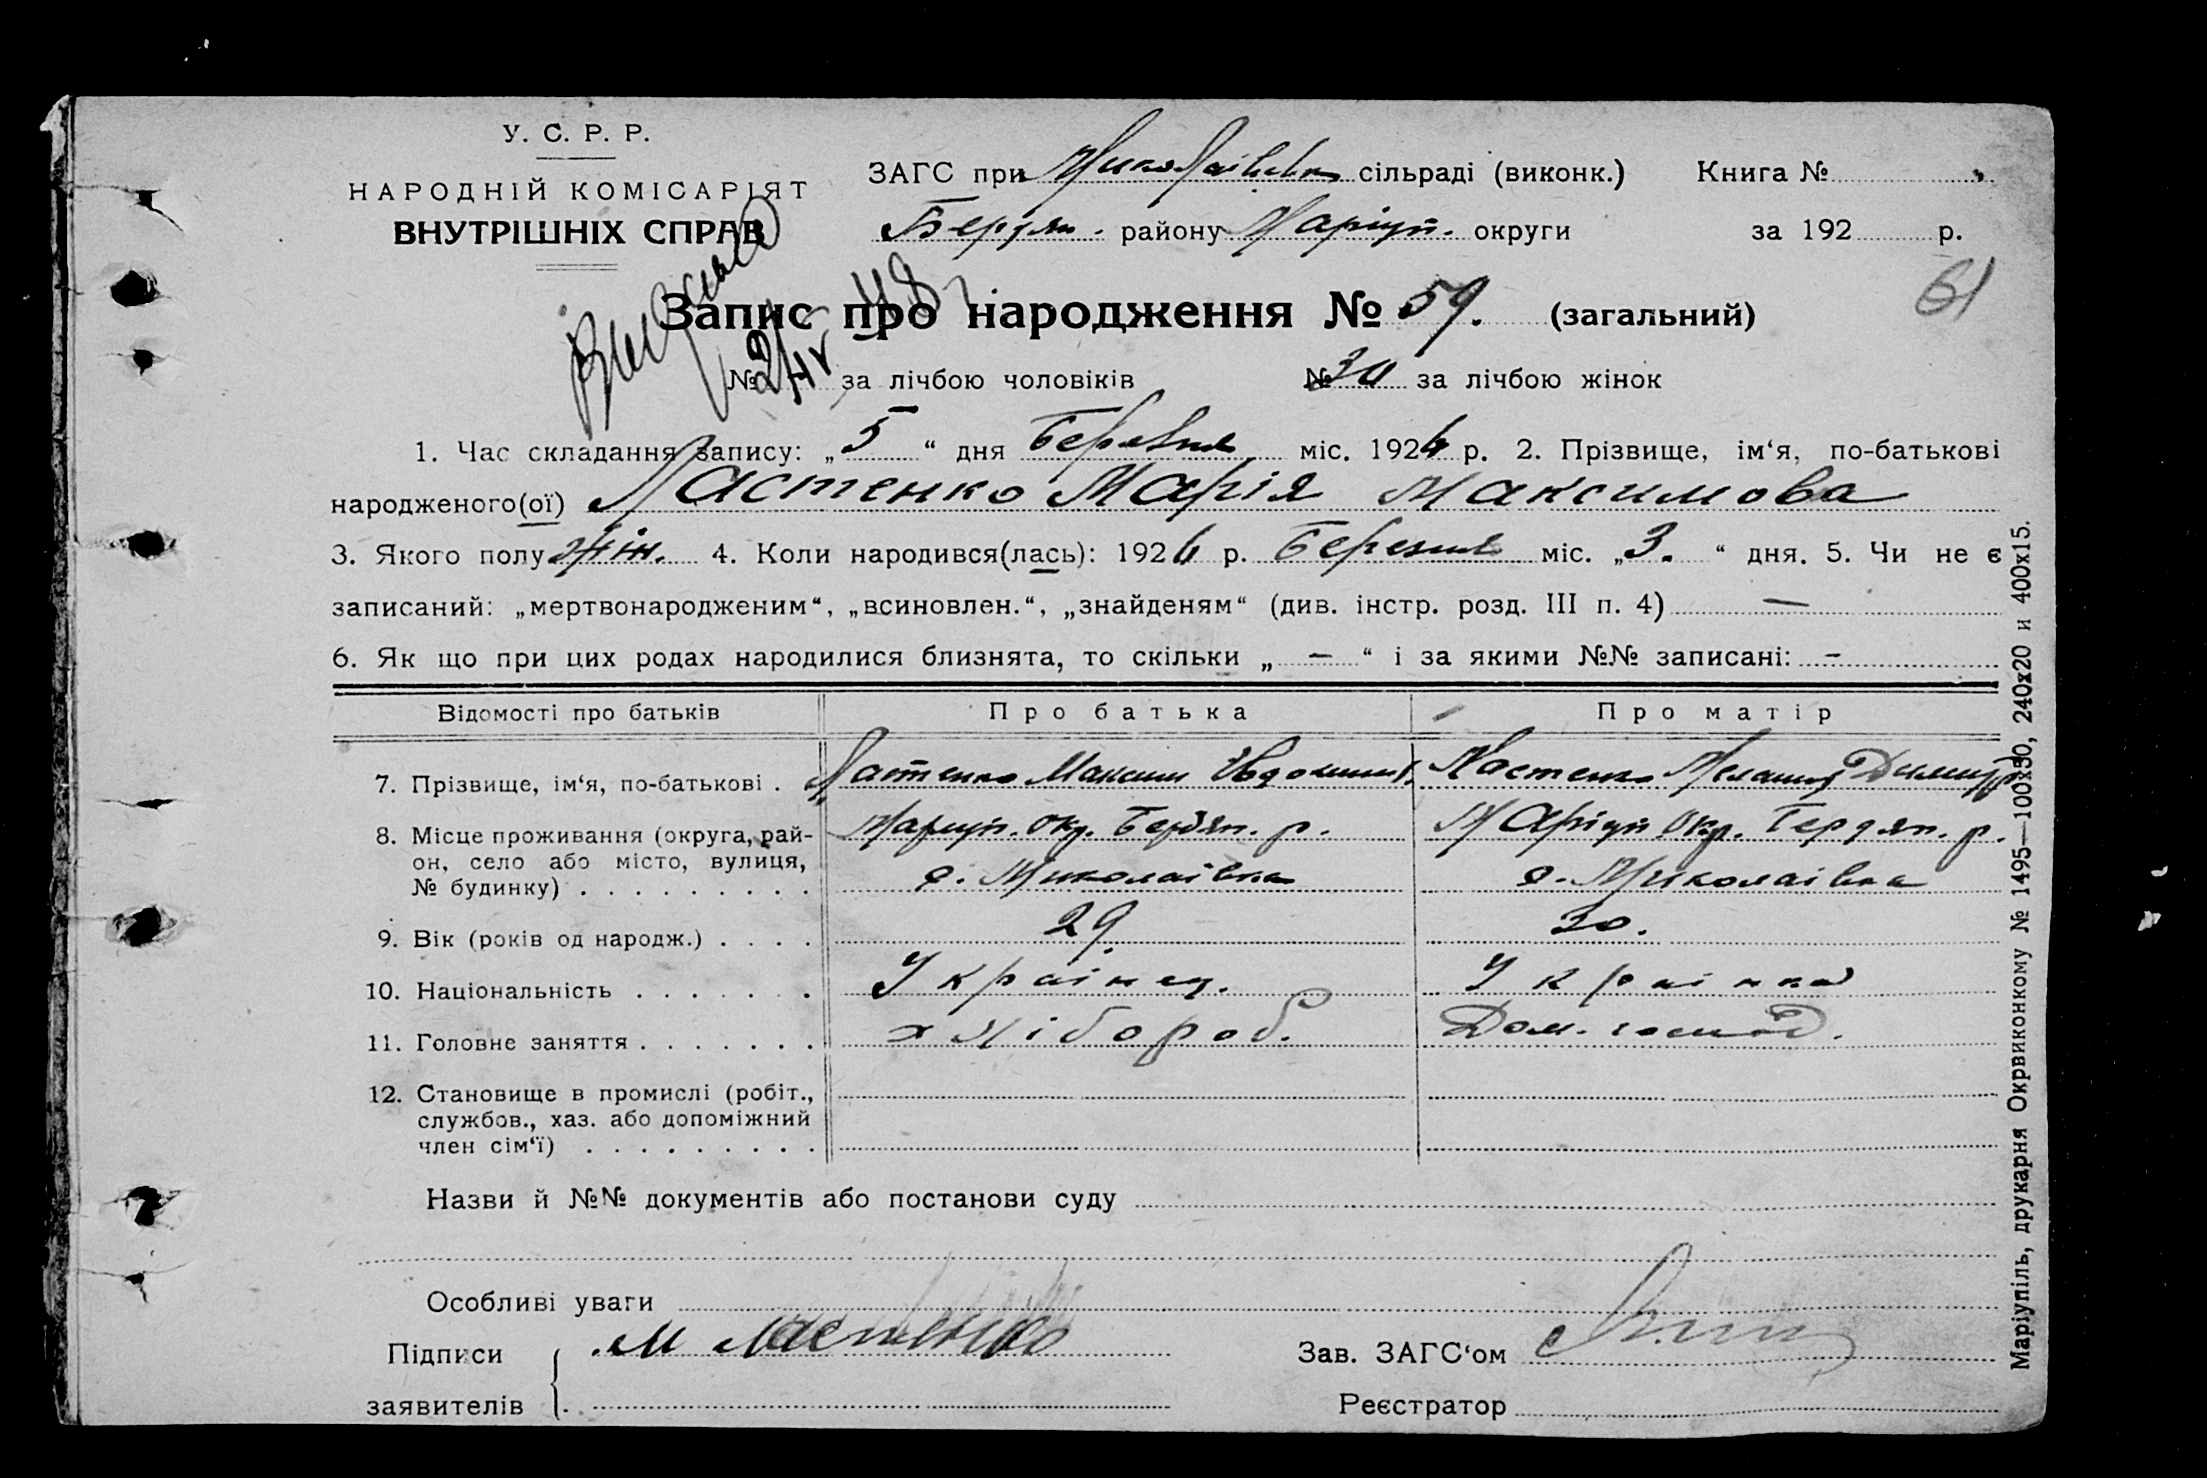 У. С. Р. Р.
НАРОДНІЙ КОМІСАРІЯТ
ВНУТРІШНІХ СПРАВ
ЗАГС при сільраді (виконк.) Книга №
Бердян. району Маріуп. округи за 192 р.
61
Запис про народження № 59. (загальний)
№ за лічбою чоловіків № 30 за лічбою жінок
1. Час складання запису: „ 5 “ дня Березня міс. 1926 р. 2. Прізвище, ім‘я, по-батькові
народженого(ої) Ластенко Марія Максимова
3. Якого полу жін. 4. Коли народився(лась): 1926 р. Березня міс. „ 3. “ дня. 5. Чи не є
записаний: „мертвонародженим“, „всиновлен.“, „знайденям“ (див. інстр. розд. III п. 4) —
6. Як що при цих родах народилися близнята, то скільки „ — “ і за якими №№ записані: –
Відомості про батьків Про батька Про матір
7. Прізвище, ім‘я, по-батькові . Ластенко Максим Ластенко
8. Місце проживання (округа, рай- Маріуп. окр. Бердян. р. Маріуп окр. Бердян. р.
он, село або місто, вулиця, с. Миколаівка с. Миколаівка
№ будинку) . . . . . . . . .
9. Вік (років од народж.) . . . . 29 30.
10. Національність . . . . . . . Украінец. Украінка
11. Головне заняття . . . . . . . хлібороб. Дом. господ.
12. Становище в промислі (робіт.,
службов., хаз. або допоміжний
член сім‘ї) . . . . . . . . .
Назви й №№ документів або постанови суду
Особливі уваги
Підписи М Ластенко Зав. ЗАГС‘ом
заявителів Реєстратор
Маріупіль, друкарня Окрвиконкому № 1495—100х50, 240х20 и 400х15.